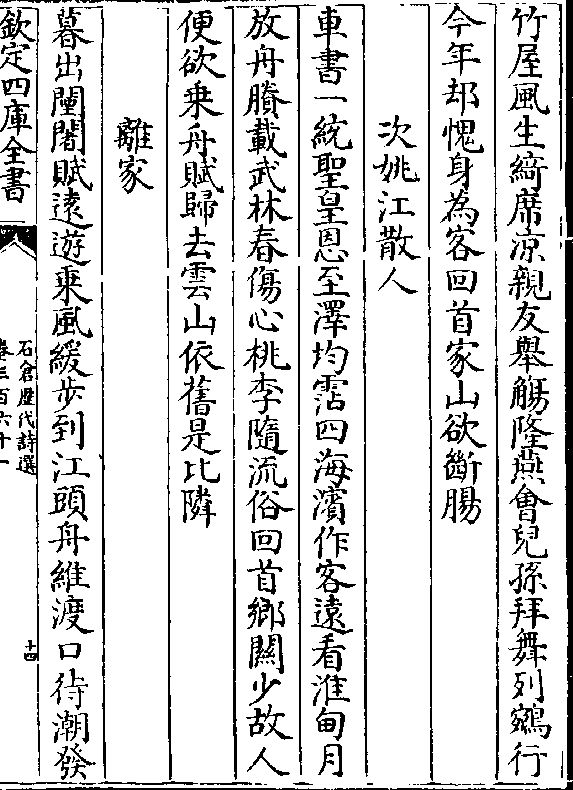 竹屋風生綺席凉親友舉觴隆燕會兒孫拜舞列鵷行
今年却愧身為客回首家山欲斷腸
次姚江散人
車書一統聖皇恩至澤均霑四海濱作客遠看淮甸月
放舟賸載武林春傷心桃李隨流俗回首鄉關少故人
便欲乗舟賦歸去雲山依舊是比隣
離家
暮出闉闍賦遠遊乗風緩步到江頭舟維渡口待潮發
欽定四庫全書
石倉歷代詩選
卷三百六十一
十四